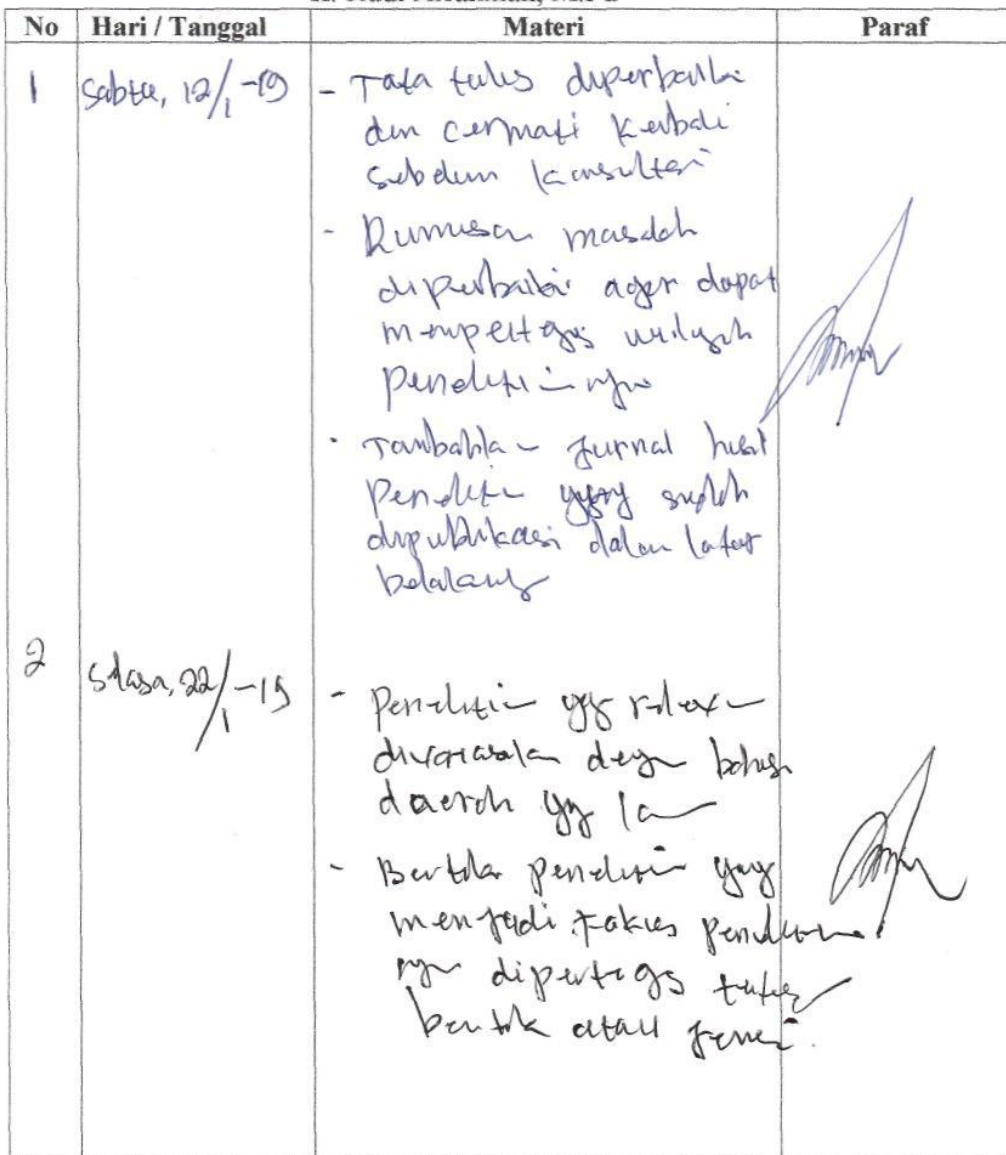 No Hari / Tanggal Materi Paraf
1 Sabtu, 12/1-19 - Tata tulis diperbaiki
dan cermati kembali
sebelum konsultasi
- Rumusan masalah
diperbaiki agar dapat
mempertegas wilayah
penelitiannya
- Tambahkan jurnal hasil
penelitian yang sudah
dipublikasi dalam latar
belakang
2 Selasa, 22/1-19 - Penelitian yg relevan
dengan bahasa
daerah yg lain
- Bentuk penelitian yang
menjadi fokus penelitian
nya dipertegas
bentuk atau jenis